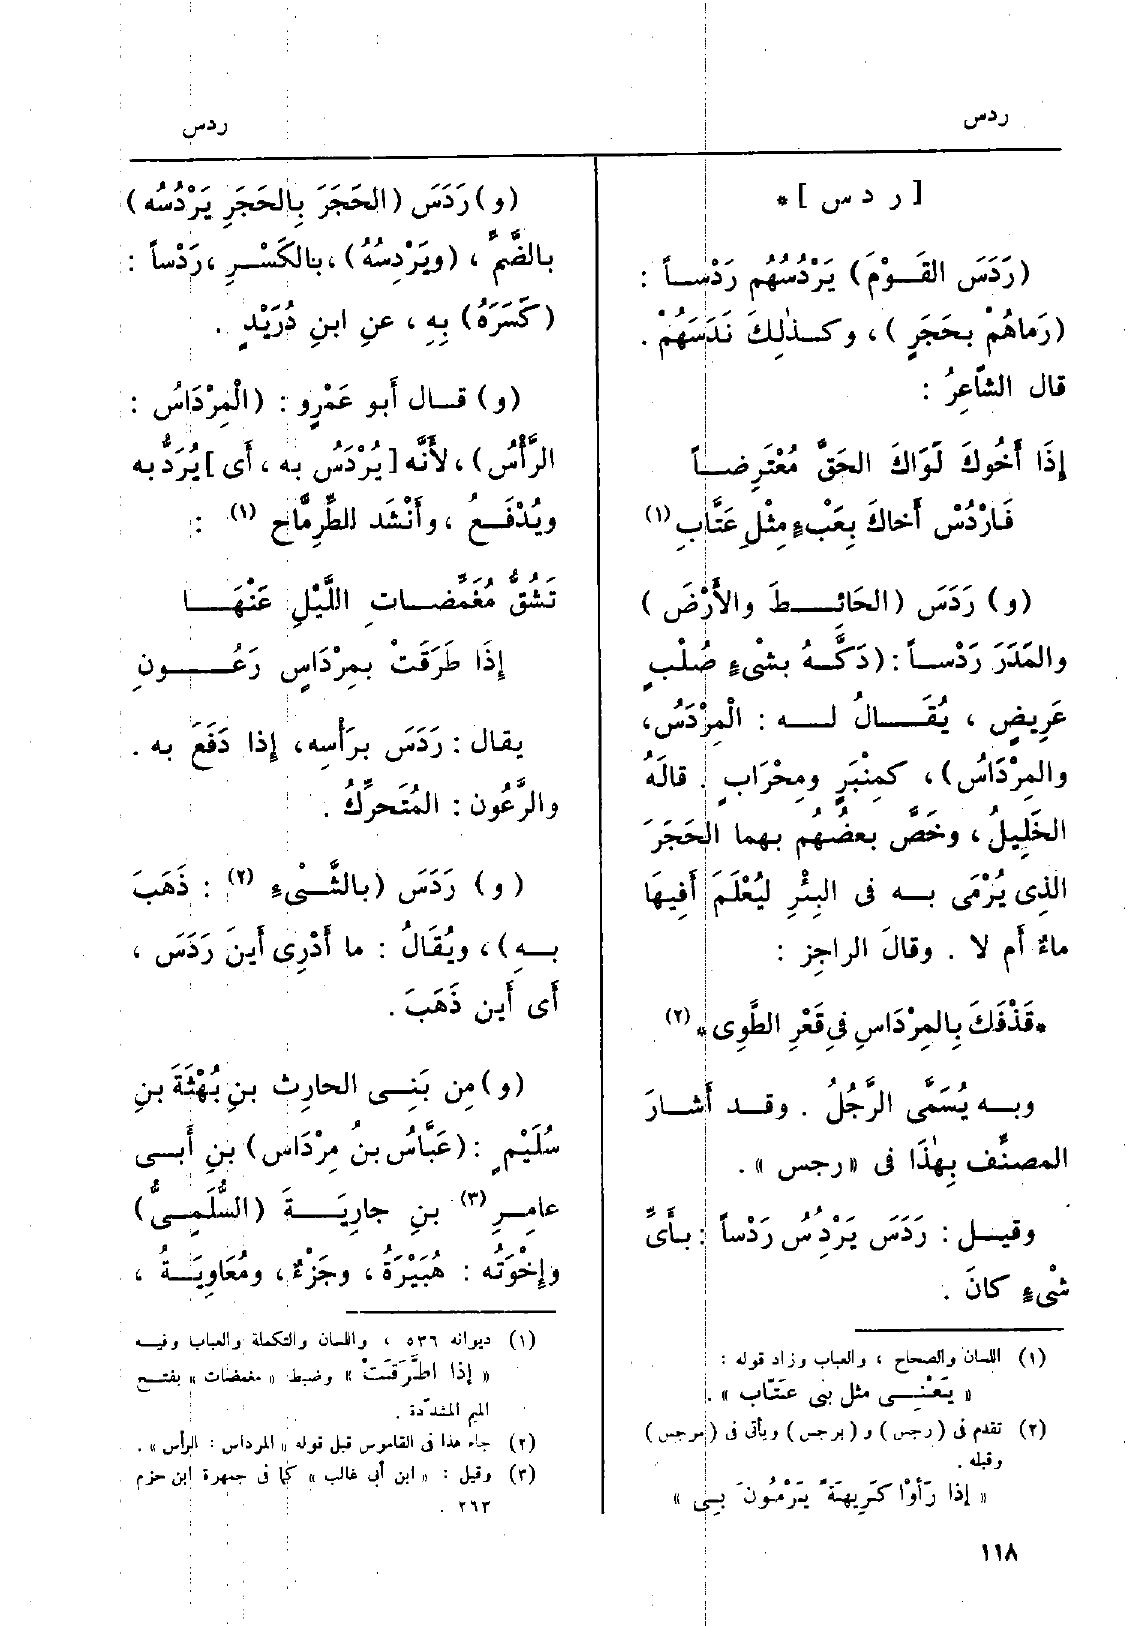 ردس
ردس
[ ر د س ] *
(رَدَسَ القَوْمَ) يَرْدُسُهُم رَدْساً :
(رَماهُمْ بحَجَرٍ )، وكذٰلِكَ نَدَسَهُمْ .
قال الشّاعِرُ :
إِذَا أَخُوكَ لَوَاكَ الحَقَّ مُعْتَرِضاً
فَارْدُسْ أَخاكَ بِعَبْءٍ مِثْلِ عَتَّابِ (١)
(و) رَدَسَ (الحَائِطَ والأَرْضَ )
والمَدَرَ رَدْساً : (دَكَّهُ بشْىءٍ صُلْبٍ
عَرِيضٍ ، يُقَالُ له : الْمِرْدَسُ،
والمِرْدَاسُ)، كمِنْبَرٍ ومِحْرَابٍ . قالَهُ
الخَلِيلُ، وخَصَّ بعضُهُم بهما الحَجَرَ
الذِى يُرْمَى به فى البِئْرِ ليُعْلَمَ أَفِيهَا
ماءٌ أَم لا . وقالَ الراجِز :
*قَذْفَكَ بِالمِرْدَاسِ فى قَعْرِ الطَّوِى* (٢)
وبه يُسَمَّى الرَّجُلُ . وقد أَشارَ
المصنِّف بِهٰذَا فى «رجس » .
وقيل : رَدَسَ يَرْدُسُ رَدْساً : بأَىِّ
شْىءٍ كانَ .
(١) اللسان والصحاح ، والعباب وزاد قوله :
« يَعْنِى مثل بنى عتّاب » .
(٢) تقدم فى (رجس ) و (برجس ) ويأتى فى (مرجس )
وقبله .
« إذا رَأَوْا كَرِيهَةً يَرْمُونَ بِى »
١١٨
(و) رَدَسَ (الحَجَرَ بِالحَجَرِ يَرْدُسُه )
بالضَّمِّ ، (ويَرْدِسُهُ)، بالكَسْرِ ، رَدْساً :
(كَسَرَهُ) بِهِ ، عنِ ابنِ دُرَيْدٍ .
(و) قال أَبو عَمْرٍو : (الْمِرْدَاسُ :
الرَّأْسُ)، لأَنَّه [يُرْدَسُ به ، أَى ] يُرَدُّ به
ويُدْفَعُ ، وأَنْشَد للطِّرِمَّاح (١) :
تَشُقُّ مُغَمِّضاتِ اللَّيْلِ عَنْهَا
إِذَا طَرَقَتْ بمِرْدَاسٍ رَعُونِ
يقال : رَدَسَ برَأْسِه، إِذا دَفَعَ به .
والرَّعُون : المُتَحرِّكُ .
(و) رَدَسَ (بالشَّىْءِ (٢) : ذَهَبَ
بهِ)، ويُقَالُ : ما أَدْرِى أَينَ رَدَسَ ،
أَى أَين ذَهَبَ .
(و) مِن بَنِى الحارِث بنِ بُهْثَةَ بنِ
سُلَيْمٍ : (عَبَّاسُ بنُ مِرْدَاس) بنِ أَبى
عامِرِ (٣) بنِ جارِيَةَ (السُّلَمِىُّ )
وإِخْوَتُه : هُبَيْرَةُ ، وجَزْءٌ ، ومُعَاوِيَةُ ،
(١) ديوانه ٥٣٦ ، واللسان والتكملة والعباب وفيه
« إذا اطَّرَقَتْ » وضبط « مغمضات » بفتح
الميم المشدّدة .
(٢) جاء هذا فى القاموس قبل قوله « المرداس : الرأس » .
(٣) وقيل : « ابن أبى غالب » كما فى جمهرة ابن حزم
٢٦٣ .